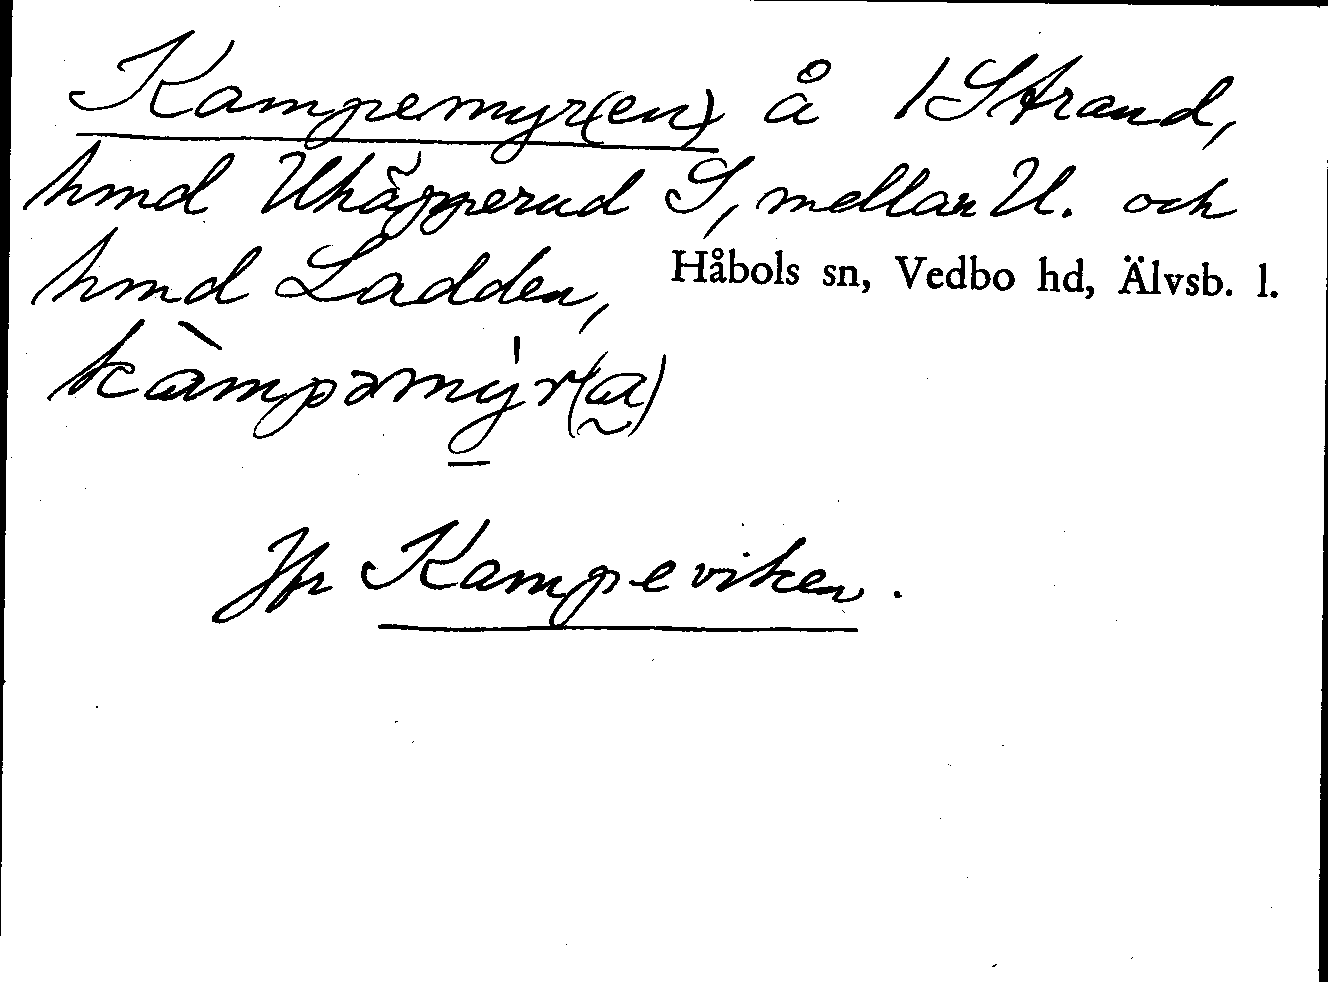 Kampemyr(en) å 1 Strand,
hmd Uhäpperud S, mellan U. och
hmd Ladden,
Håbols sn, Vedbo hd, Älvsb. l.
kàmpəmýr(a)
Jfr Kampeviken.